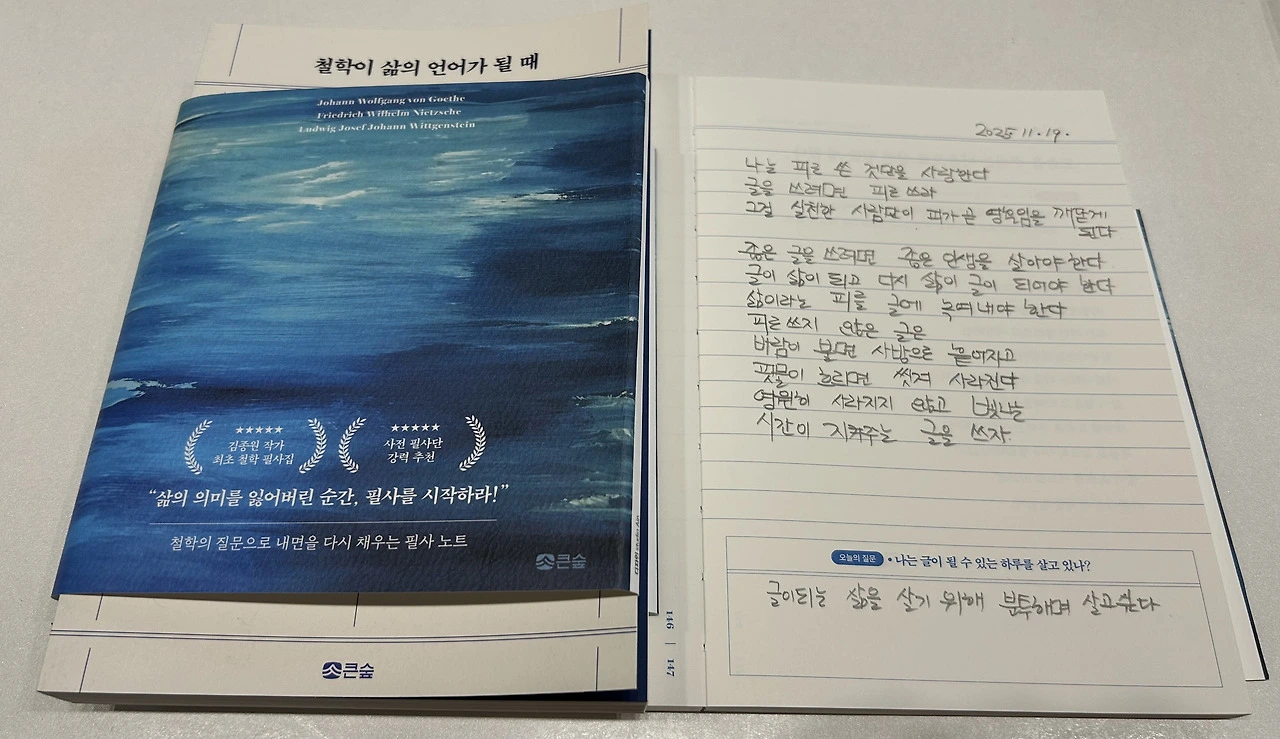 철학이 삶의 언어가 될 때
Johann Wolfgang von Goethe
Friedrich Wilhelm Nietzsche
Ludwig Josef Johann Wittgenstein
★★★★★
김종원 작가
최초 철학 필사집
★★★★★
사전 필사단
강력 추천
“삶의 의미를 잃어버린 순간, 필사를 시작하라!”
철학의 질문으로 내면을 다시 채우는 필사 노트
큰숲
큰숲
2025 11.19.
나는 피로 쓴 것만을 사랑한다
글을 쓰려면 피로 쓰라
그걸 실천한 사람만이 피가 곧 영혼임을 깨닫게
된다
좋은 글을 쓰려면 좋은 인생을 살아야 한다
글이 삶이 되고 다시 삶이 글이 되어야 한다
삶이라는 피를 글에 녹여내야 한다
피로 쓰지 않은 글은
바람이 불면 사방으로 흩어지고
핏물이 흐르면 씻겨 사라진다
영원히 사라지지 않고 빛나는
시간이 지켜주는 글을 쓰자
오늘의 질문 • 나는 글이 될 수 있는 하루를 살고 있나?
글이되는 삶을 살기 위해 분투하며 살고싶다
146 | 147